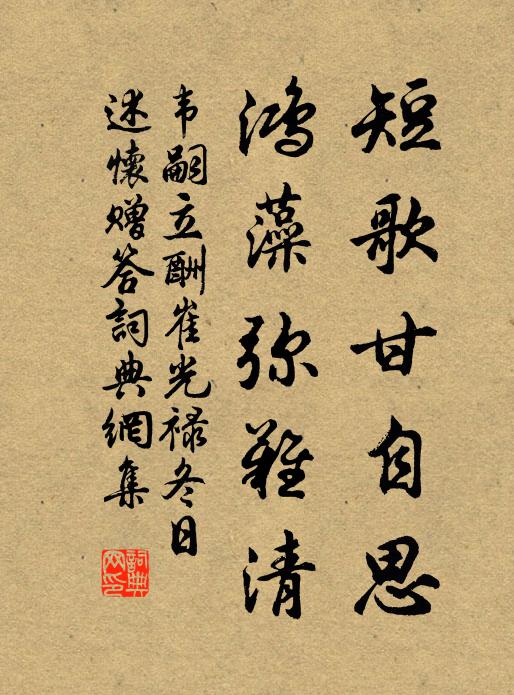 短歌甘自思
鴻藻弥難清
韦嗣立酬崔光禄冬日
述懷赠答詞典網集
詞典
网印